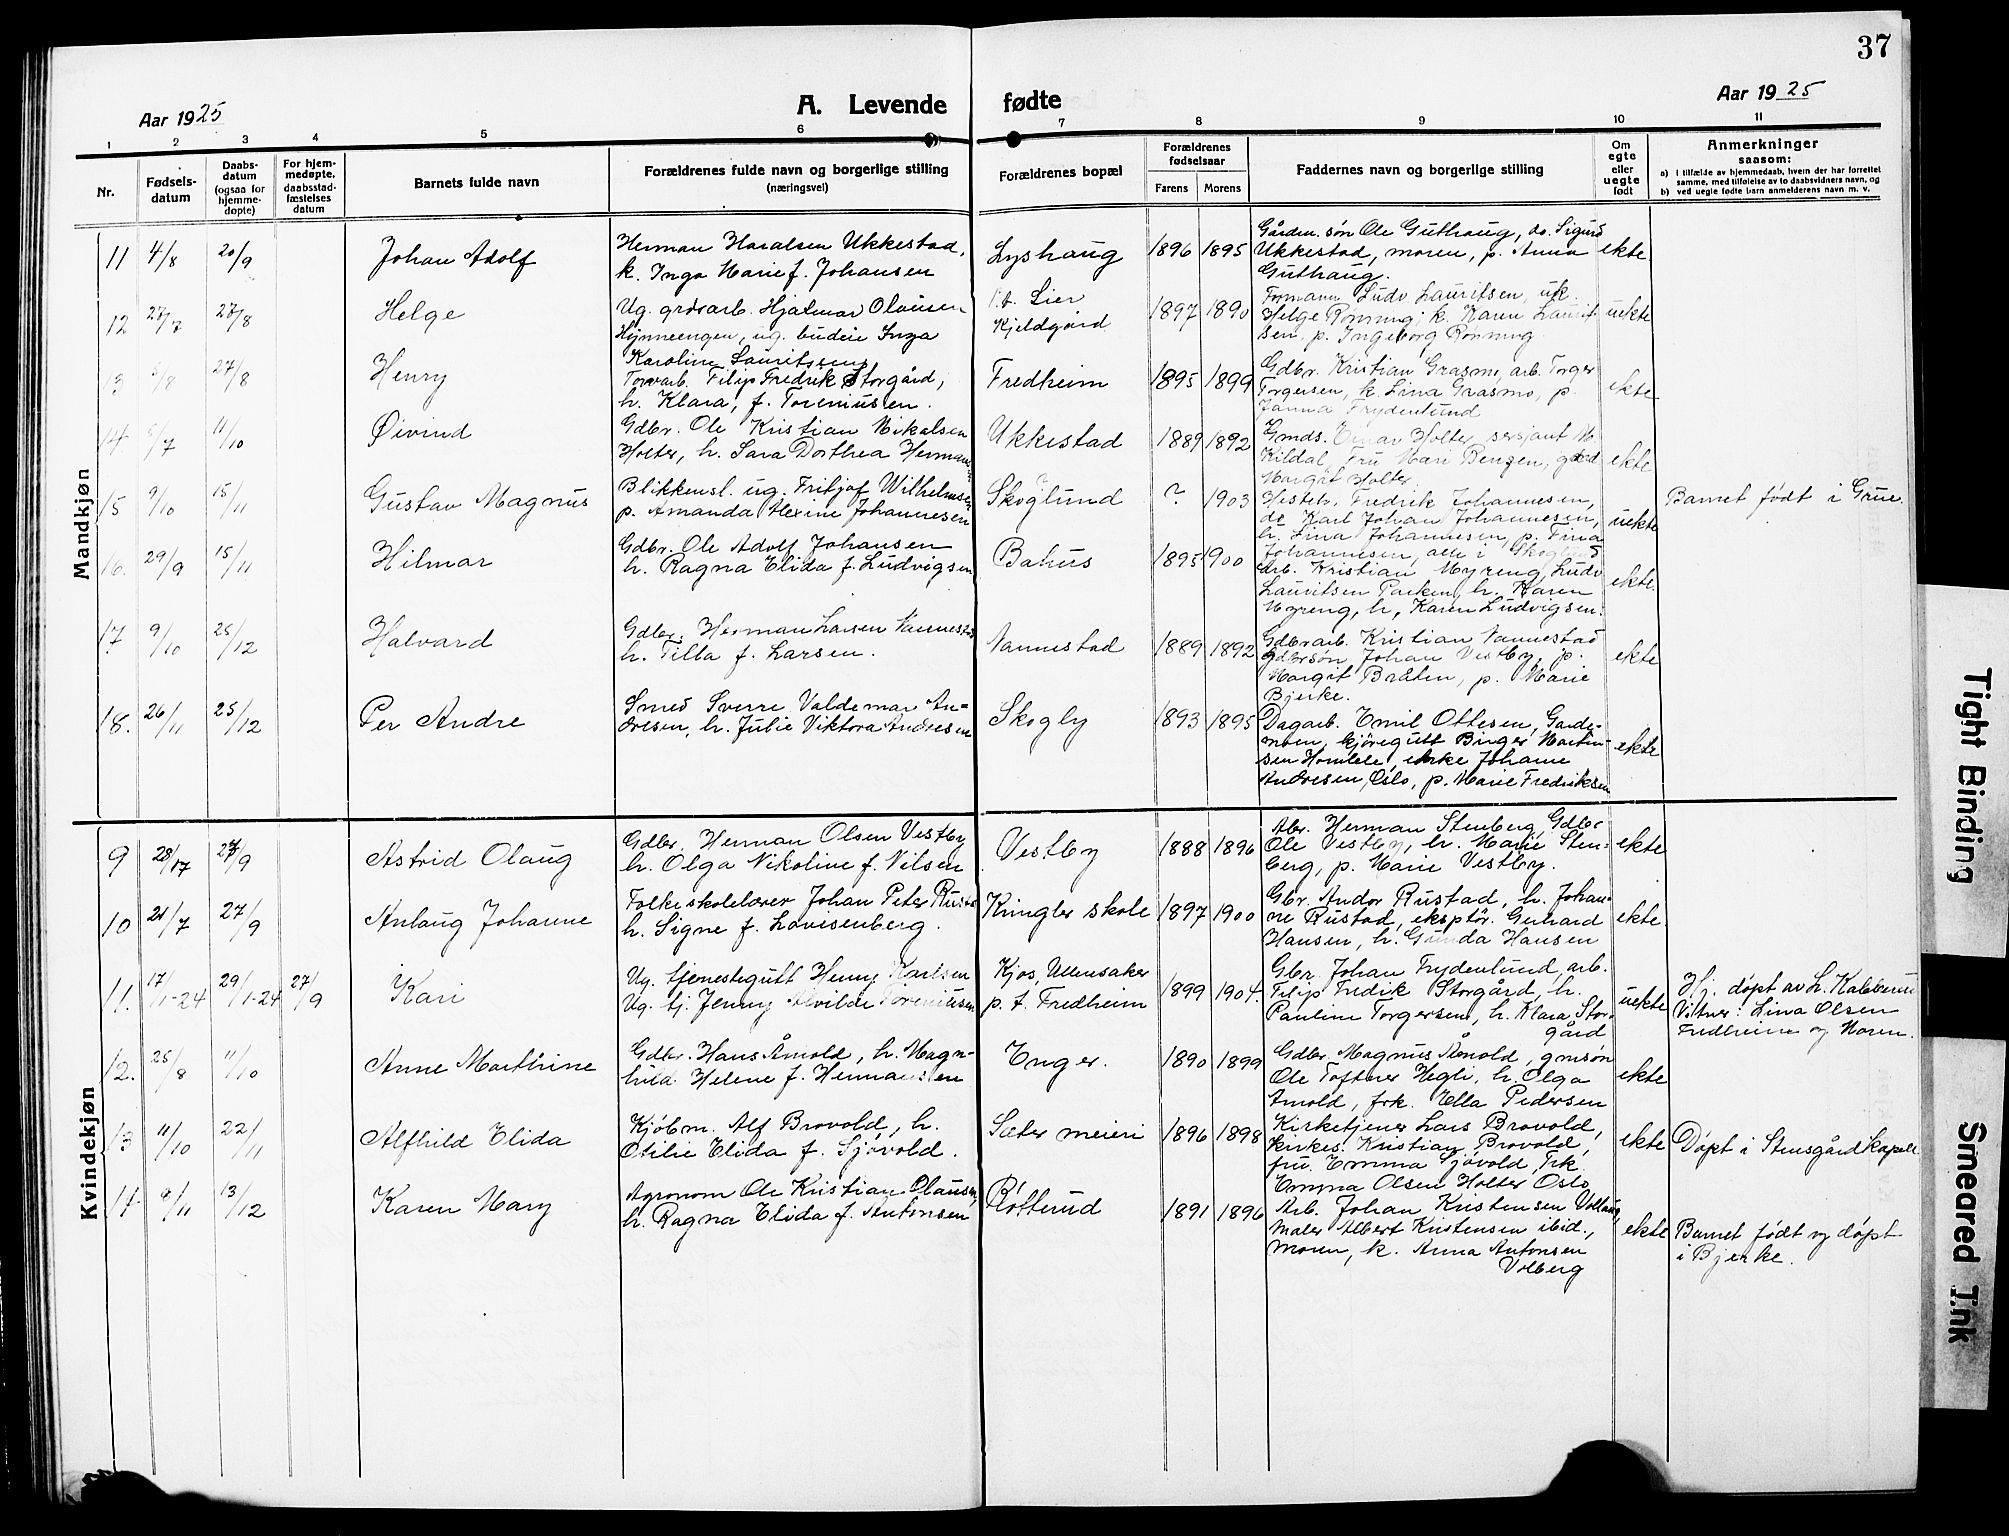 37
Aar 1925
A. Levende fødte
Aar 1925
1 2 3 4 5 6 7 8 9 10 11
Nr.
Fødsels-
datum
Daabs-
datum
(ogsaa for
hjemme-
døpte)
For hjem-
medøpte,
daabsstad-
fæstelses
datum
Barnets fulde navn
Forældrenes fulde navn og borgerlige stilling
(næringsvei)
Forældrenes bopæl
Forældrenes
fødselsaar
Farens Morens
Faddernes navn og borgerlige stilling
Om
egte
eller
uegte
født
Anmerkninger
saasom:
a) i tilfælde av hjemmedaab, hvem der har forrettet
samme, med tilføielse av to daabsvidners navn, og
b) ved uegte fødte barn anmelderens navn m. v.
Mandkjøn
11 4/8 20/9 Johan Adolf
Herman Haralsen Ukkestad,
k. Inga Marie f. Johansen
Lyshaug 1896 1895
Gården. søn Ole Guthaug, do. Sigurd
Ukkestad, moren, p. Anna
Guthaug.
ekte
12 27/7 27/8 Helge
Ug. grovarb. Hjalmar Olausen
Hynneengen, ug. budeie Inga
Karoline Lauritssen
p.t. Lier
Kjeldgård
1897 1890
Formann Ludv Lauritsen, uk.
Helge Rønning; k. Karen Laurit
sen, p. Ingeborg Rønning.
uekte
13 /8 27/8 Henry
Torvarb. Filip Fredrik Storgård,
h. Klara, f. Toreniussen.
Fredheim 1895 1899
Gdbr. Kristian Grasmo, arb. Torger
Torgersen, k. Lina Grasmo, p.
Janna Frydenlund
ekte
14 /7 11/10 Øivind
Gdbr. Ole Kristian Mikalsen
Holter, h. Sara Dorthea Hermans
Ukkestad 1889 1892
Gmds. Einar Holter, sersjant M.
Kildal, Fru Mari Bengen,
Margit Holter.
ekte
15 9/10 15/11 Gustav Magnus
Blikkensl. ug. Fritjof Wilhelmsen
p. Amanda Alexine Johannesen
Skoglund ? 1903
Hesteh. Fredrik Johannesen,
do Karl Johan Johannesen,
h. Lina Johannesen, p. Tina
Johannesen, alle i Skoglund
uekte
Barnet født i Grue.
16. 29/9 15/11 Hilmar
Gdbr. Ole Adolf Johansen
h. Ragna Elida f. Ludvigsen
Bahus 1895 1900
Arb. Kristian Myreng, Ludv
Lauritsen Parken, h. Karen
Myreng, h, Karen Ludvigsen.
ekte.
17. 9/10 25/12 Halvard
Gdbr. Herman Larsen Nannestad
h. Tilla f. Larsen.
Nannestad 1889 1892
Gdbrarb. Kristian Nannestad
gdbrsøn Johan Vestby, p.
Margit Bråten, p. Marie
Bjerke.
ekte
18. 26/11 25/12 Per Andre
Smed Sverre Valdemar An=
dresen, h. Julie Viktora Andresen
Skogly 1893 1895
Dagarb. Emil Ottesen, Garde-
moen, kjøregutt Birger Martin-
sen Homlele, enke Johanne
Andresen, Oslo, p. Marie Fredriksen
ekte
Kvindekjøn
9 28/7 27/9 Astrid Olaug
Gdbr. Herman Olsen Vestby
h. Olga Nikoline f. Nilsen
Vestby 1888 1896
Abr. Herman Stenberg, Gdbr
Ole Vestby, h. Marie Sten=
berg, p. Marie Vestby.
ekte
10 21/7 27/9 Anlaug Johanne
Folkeskolelærer Johan Peter Rustad
h. Signe f. Lovisenberg.
Kringler skole 1897 1900
Gbr. Andor Rustad, h. Johan=
ne Rustad, eksptør. Gerhard
Hansen, h. Gunda Hansen
ekte
11. 17/1-24 29/1-24 27/9 Kari
Ug. tjenestegutt Henry Karlsen
Ug. tj. Jenny Alvilde Toreniussen
Kjos, Ullensaker
p. t. Fredheim
1899 1904.
Gbr. Johan Frydenlund, arb.
Filip Fredik Storgård, h.
Pauline Torgersen, h. Klara Stor-
gård
uekte
Hj. døpt av L. Kalkerud
Vitner: Lina Olsen
Fredheim og Moren.
12. 25/8 11/10 Anne Marthine
Gdbr. Hans Årnold, h. Magn-
hild Helene f. Hermansen
Enger. 1890 1899
Gdbr. Magnus Årnold, gmsøn
Ole Toftner Hegli, h. Olga
Arnold, frk. Ella Pedersen
ekte
13 11/10 22/11 Alfhild Elida
Kjøbm. Alf Brovold, h.
Otilie Elida f. Sjøvold.
Sæter meieri 1896 1898
Kirketjener Lars Brovold,
kirkes. Kristian Brovold,
fru. Emma Sjøvold, Frk.
Emma Olsen Holter Oslo
ekte
Døpt i Stensgård kapell
14 9/11 13/12 Karen Mary
Agronom Ole Kristian Olausen,
h. Ragna Elida f. Antonsen
Røtterud 1891 1896
Arb. Johan Kristensen Vollaug,
maler Albert Kristensen ibid.,
moren, k. Anna Antonsen
Volberg
ekte
Barnet født og døpt
i Bjerke.
Tight Binding
Smeared Ink